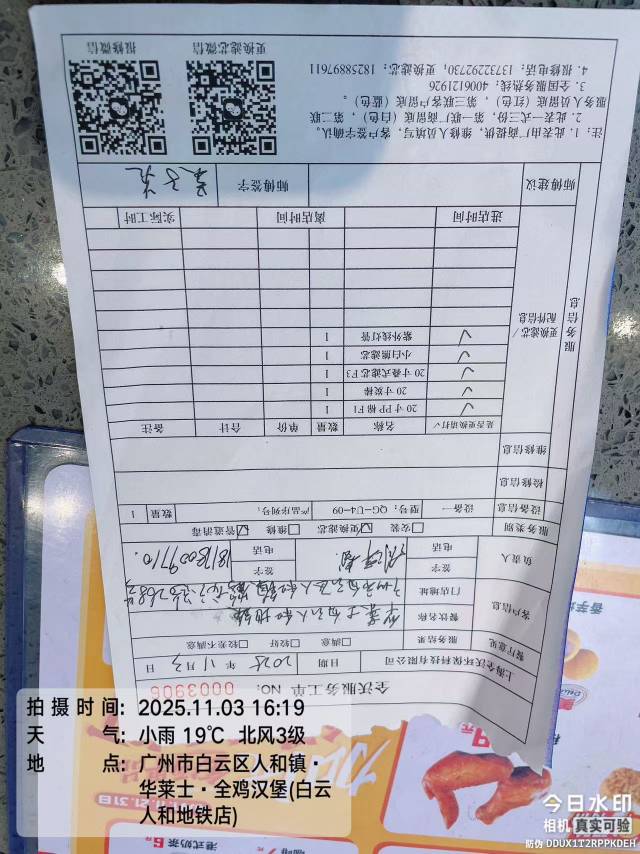 全沃服务工单 NO: 0003906
上海全沃环保科技有限公司 日期 2025 年 11 月 3 日
餐厅意见 服务结果 □满意 □较好 □较差不满意
客户信息 餐饮名称 华莱士白云人和地铁
门店地址
负责人 签字 签字
电话 电话 18178009710.
服务类别 □安装 ☑更换滤芯 □维修 ☑管道消毒
设备信息 设备一 型号: QG-U4-09 产品序列号: 数量 1
检修信息
维修信息
服务信息
更换滤芯/配件信息
是否更换请打√ 名称 数量 单价 合计 备注
√ 20寸PP棉F1 1
√ 20寸炭棒 1
√ 20寸叠式滤芯F3 1
√ 小白熊滤芯 1
√ 紫外线灯管 1
进店时间 离店时间 实际工时
师傅建议 师傅签字
注: 1. 此表由厂商提供, 维修人员填写, 客户签字确认。
2. 此表一式三份, 第一联厂商留底(白色), 第二联
服务人员留底(红色), 第三联客户留底(蓝色)。
3. 全国服务热线: 4006121926
4. 报修电话: 13732292730, 更换滤芯: 18258897611
更换滤芯微信 报修微信
拍摄时间: 2025.11.03 16:19
天气: 小雨 19℃ 北风3级
地点: 广州市白云区人和镇·
华莱士·全鸡汉堡(白云
人和地铁店)
港式奶茶
香芋
今日水印
相机 真实可验
防伪 DDUX1T2RPPKDEH